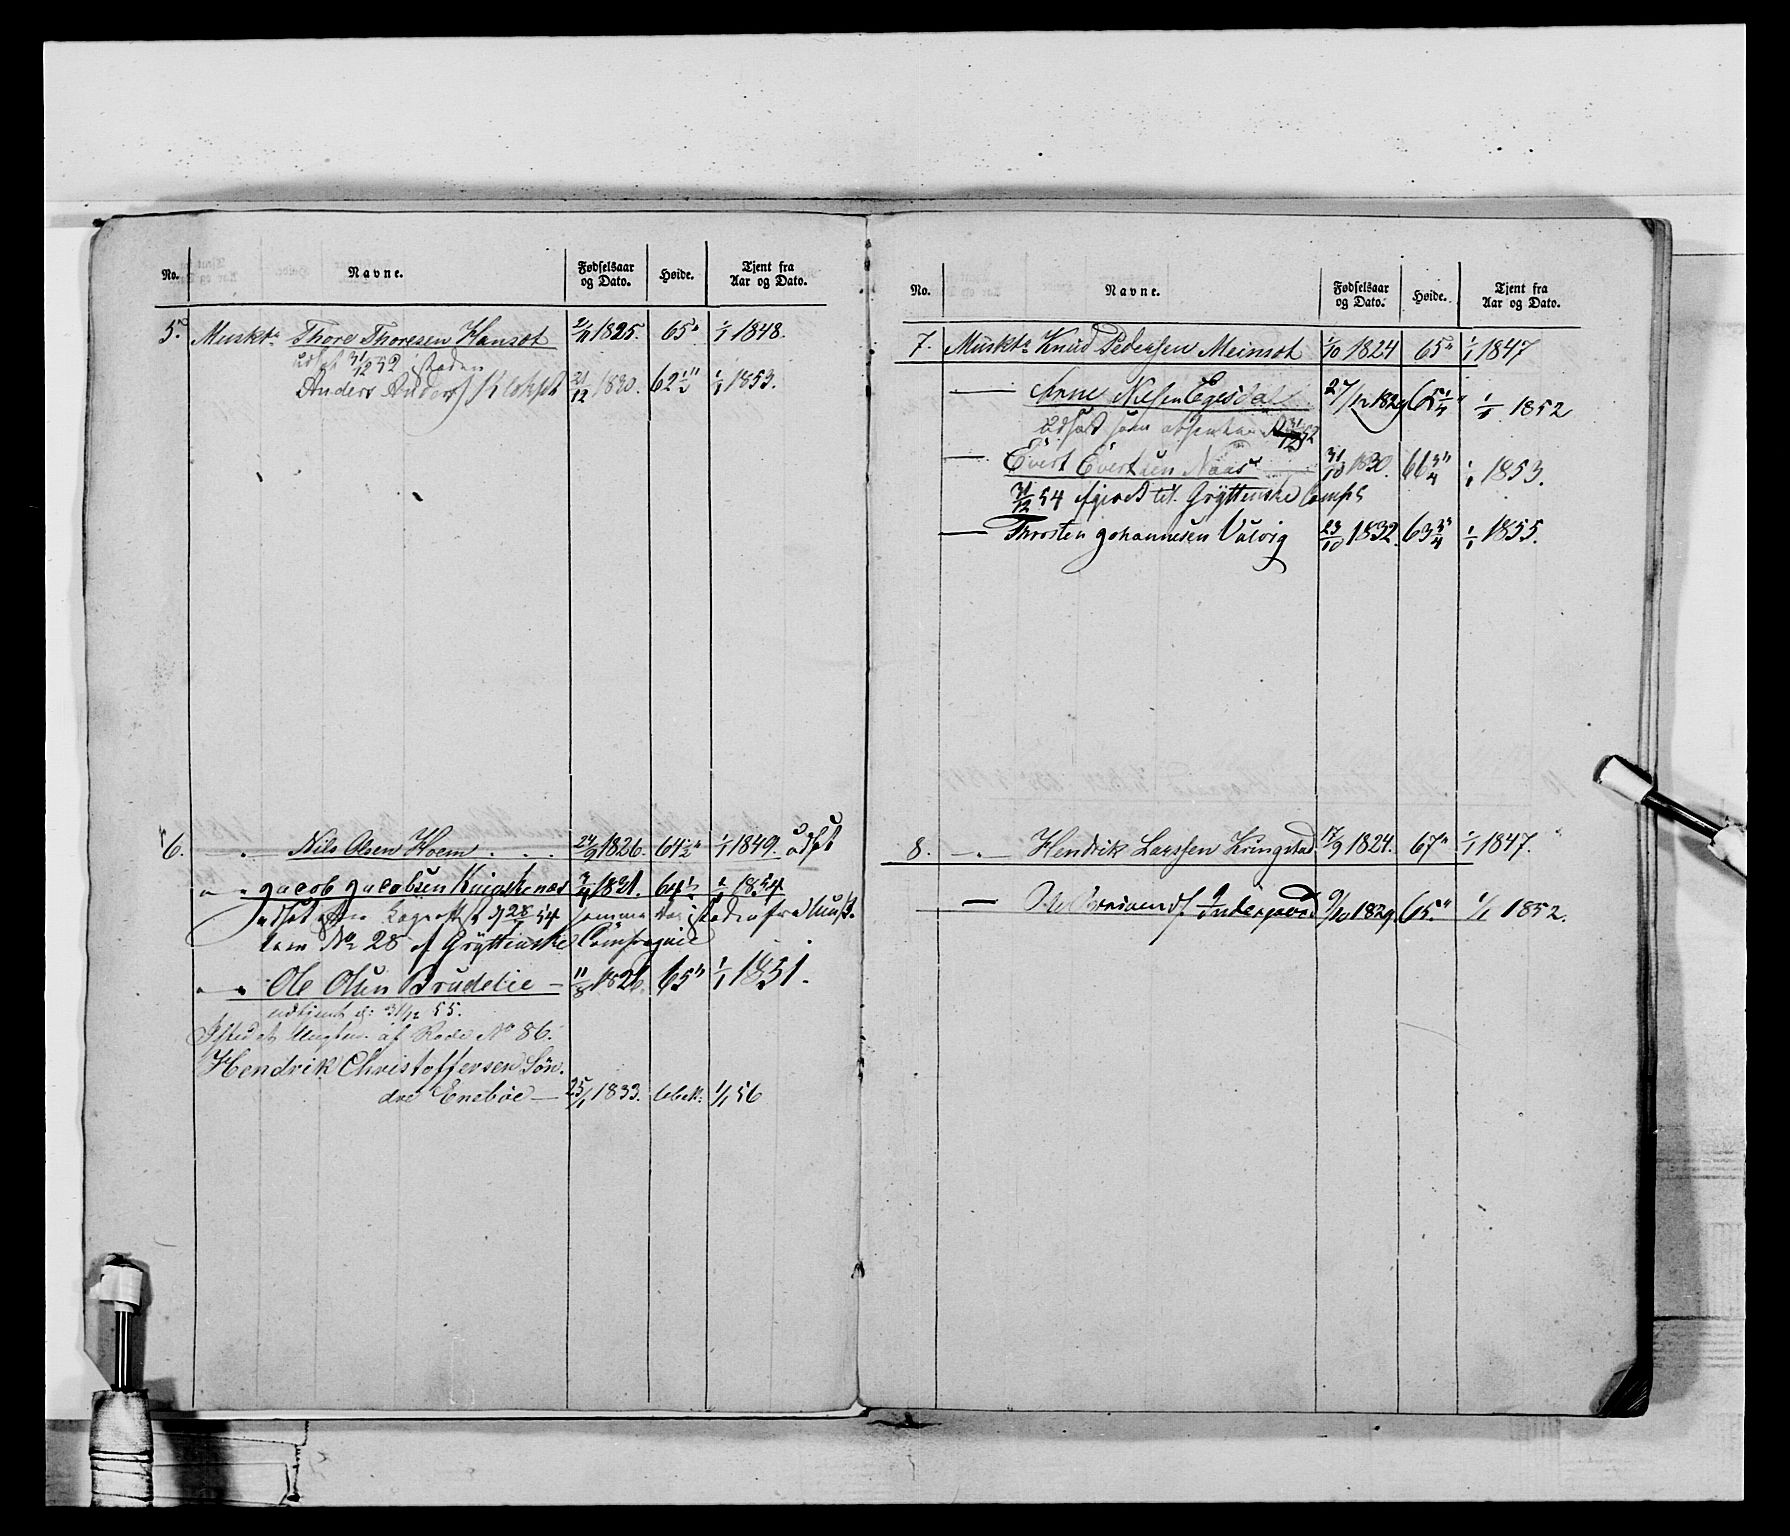 No. Navne. Fødselsaar og Dato. Høide. Tjent fra Aar og Dato.
5. Muskt. Thore Thoresen Hansæt 2/11 1825. 65" 1/1 1848.
udsat 31/12 52 isteden
Anders Anders 31/12 1830. 62 1/2" 1/1 1853.
6. — " — Nils Olsen Hoem . . . 24/9 1826. 64 1/2" 1/1 1849. udsat
" — " Jacob Jacobsen 1/1 1854
28/7 54
No 28 af Gryttenske Compagnie
" — " Ole Olsen Brudelie — 11/8 1826. 65" 1/1 1851.
udtjent d: 31/12 55.
Istedet af Rode No 86.
Hendrik Christoffersen Søn-
dre Eneboe — 25/1 1833. 1/1 56
No. Navne. Fødselsaar og Dato. Høide. Tjent fra Aar og Dato.
7. Muskt. Knud Pedersen Meinsæt 1/10 1824 65" 1/1 1847
— Arne Nielsen Egesdal 27/12 1829 65 1/4" 1/1 1852
udsat som 31/12 52
— Evert Evertsen Naas 31/10 1830. 66 3/4" 1/1 1853.
31/12 54 afgivet til Gryttenske Comp.
— Throsten Johannesen Valvig 23/10 1832. 63 3/4" 1/1 1855.
8. — " — Hendrik Larssen Kringstad 17/9 1824. 67" 1/1 1847.
— 9/10 1829 65." 1/1 1852.